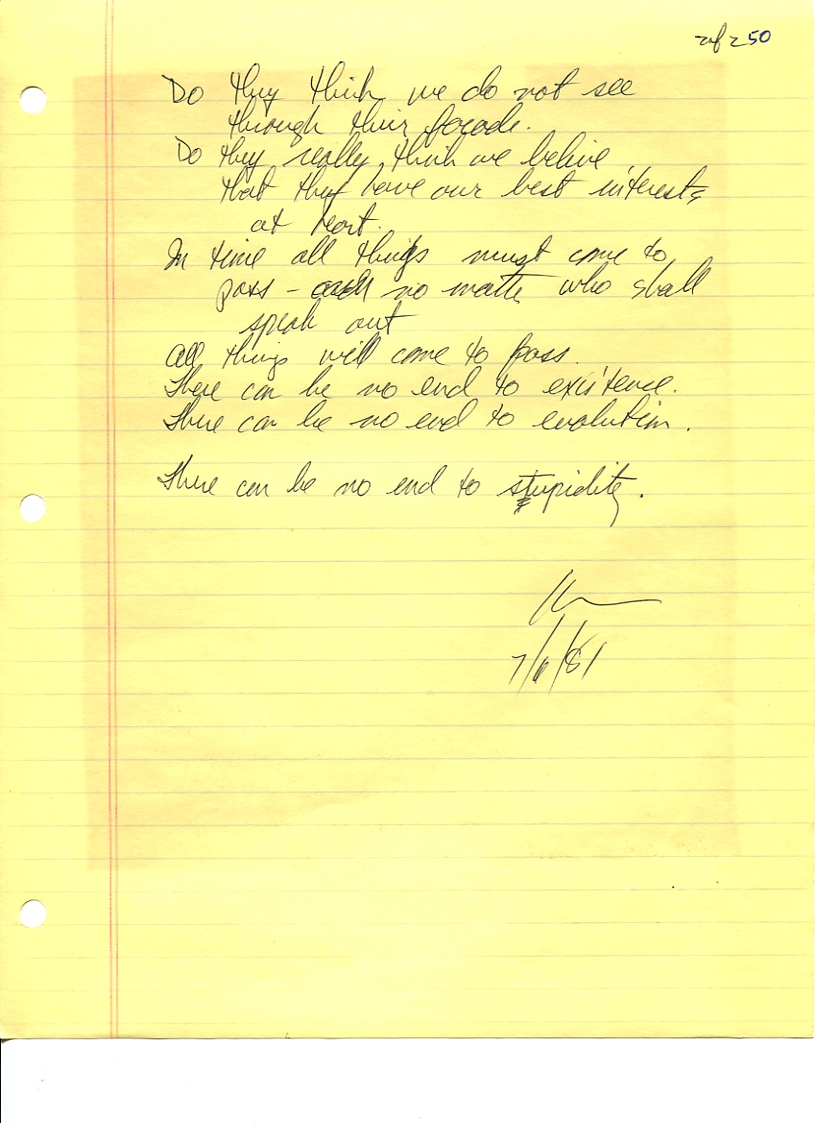 2 of 2 50
Do they think we do not see
through their façade.
Do they really think we belive
that they have our best interests
at heart.
In time all things must come to
pass - no matte who shall
speak out
All things will come to pass.
There can be no end to existence.
There can be no end to evolution.
There can be no end to stupidity.
7/6/81